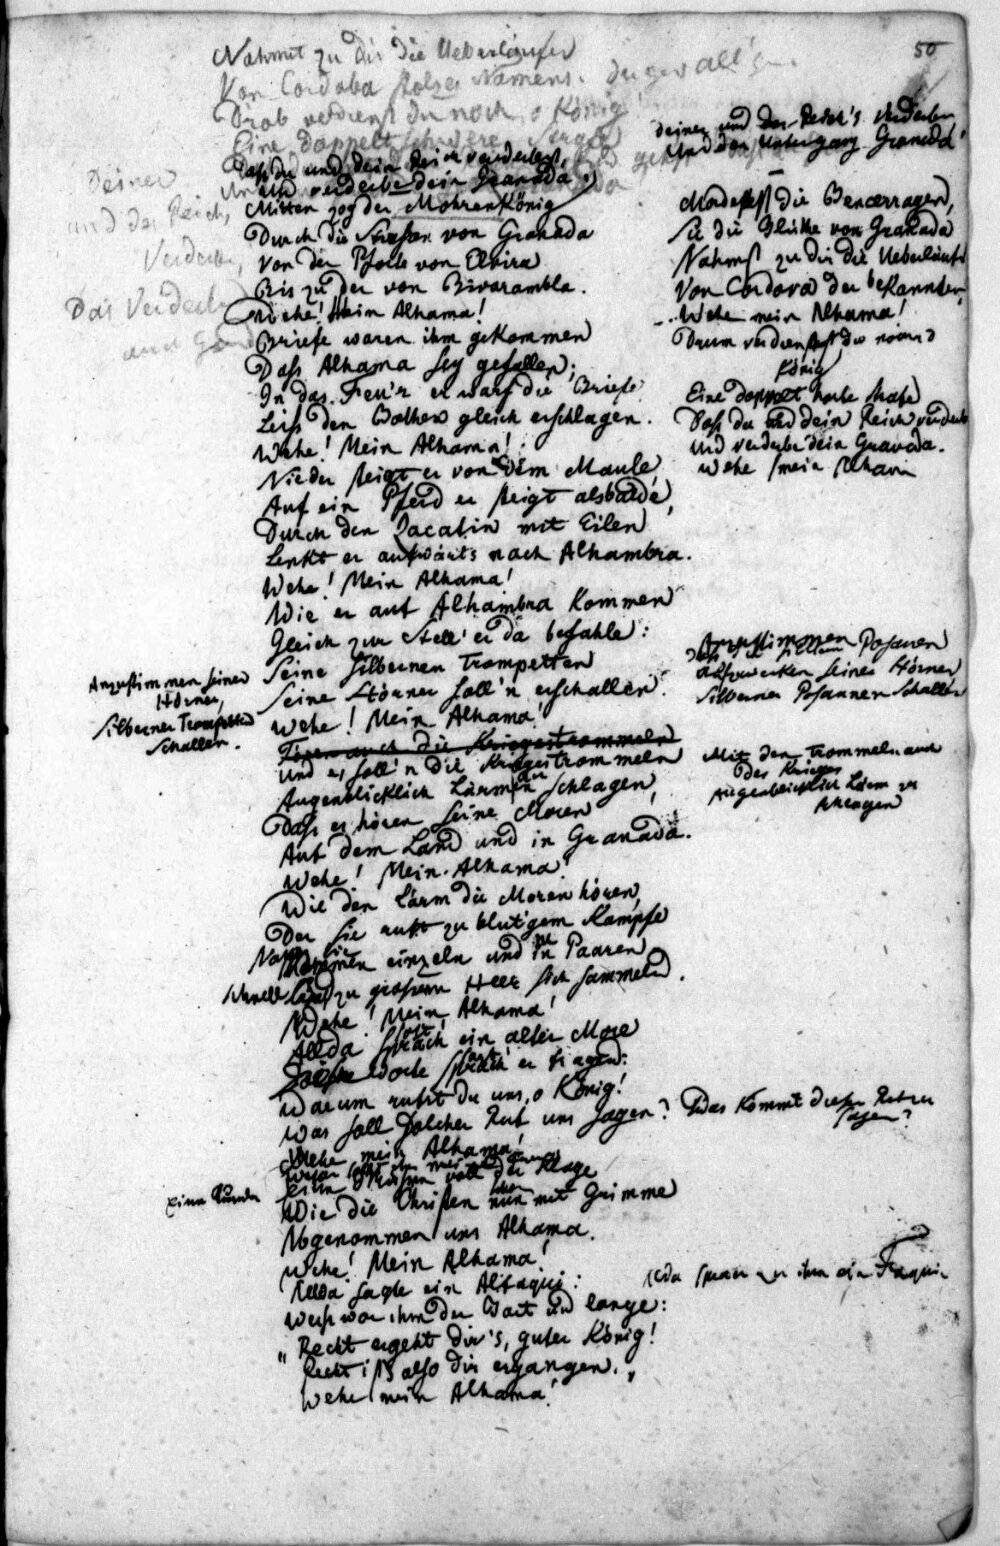 50
Nahmst zu dir die Ueberläufer
Von Cordoba stolzes Namens.
Drob verdienst du noch, o König
Eine doppelt schwere Strafe
Daß du und dein Reich verderbest,
Und verderbe dein Granada
Deiner
und des Reichs
Verderben,
Das Verderben
Mitten zog der Mohrenkönig
Durch die Straßen von Granada
Von der Pforte von Elvira
Bis zu der von Bivarambla.
Wehe! Mein Alhama!
Briefe waren ihm gekommen
Daß Alhama sey gefallen;
In das Feu'r er warf die Briefe
Ließ den Bothen gleich erschlagen.
Wehe! Mein Alhama!
Nieder steigt er von dem Maule
Auf ein Pferd er steigt alsbalde,
Durch den Zacatin mit Eilen
Lenkt er aufwärts nach Alhambra.
Wehe! Mein Alhama!
Wie er auf Alhambra kommen
Gleich zur Stell' er da befahle:
Seine silbernen Trompetten
Seine Hörner soll'n erschallen.
Wehe! Mein Alhama!
Anzustimmen seiner
Hörner,
Silberner Trompetten
Schallen.
auch die Kriegestrommeln
Und es soll'n die Kriegestrommeln
Augenblicklich Lärmen schlagen,
Daß es hören seine Moren
Auf dem Land und in Granada.
Wehe! Mein Alhama!
Wie den Lärm die Moren hören,
Der sie ruft zu blut'gem Kampfe
einzeln und in Paaren
Schnell zu großem Heer sich sammeln.
Wehe! Mein Alhama!
Allda sprach ein alter More
Worte sprach er fragend:
Warum rufst du uns, o König!
Was soll solcher Ruf uns sagen?
Wehe mein Alhama!
voll der Klage
Eine Kunde
Wie die Christen nun mit Grimme
Abgenommen uns Alhama.
Wehe! Mein Alhama!
Allda sagte ein Alfaqui:
Weiß war ihm der Bart und lange:
„Recht ergeht dir's, guter König!
Recht ists also dir ergangen."
Wehe mein Alhama!
Deiner und des Reich's Verderben
Und den Untergang Granada
Mordetest die Bencerragen,
Sie die Blüthe von Granada
Nahmst zu dir die Ueberläufer
Von Cordova der bekannten,
Wehe mein Alhama!
Drum verdientest du
König
Eine doppelt harte Strafe
Daß du und dein Reich verderbe
Und verderbe dein Granada.
Wehe mein Alhama
Anzustimmen Posaunen
seiner Hörner
Silberner Posaunen Schallen
Mit den Trommeln auch
des Krieges
Augenblicklich Lärm zu
schlagen
Was kommt dieser Ruf zu
sagen?
Allda sprach zu ihm ein Faqui